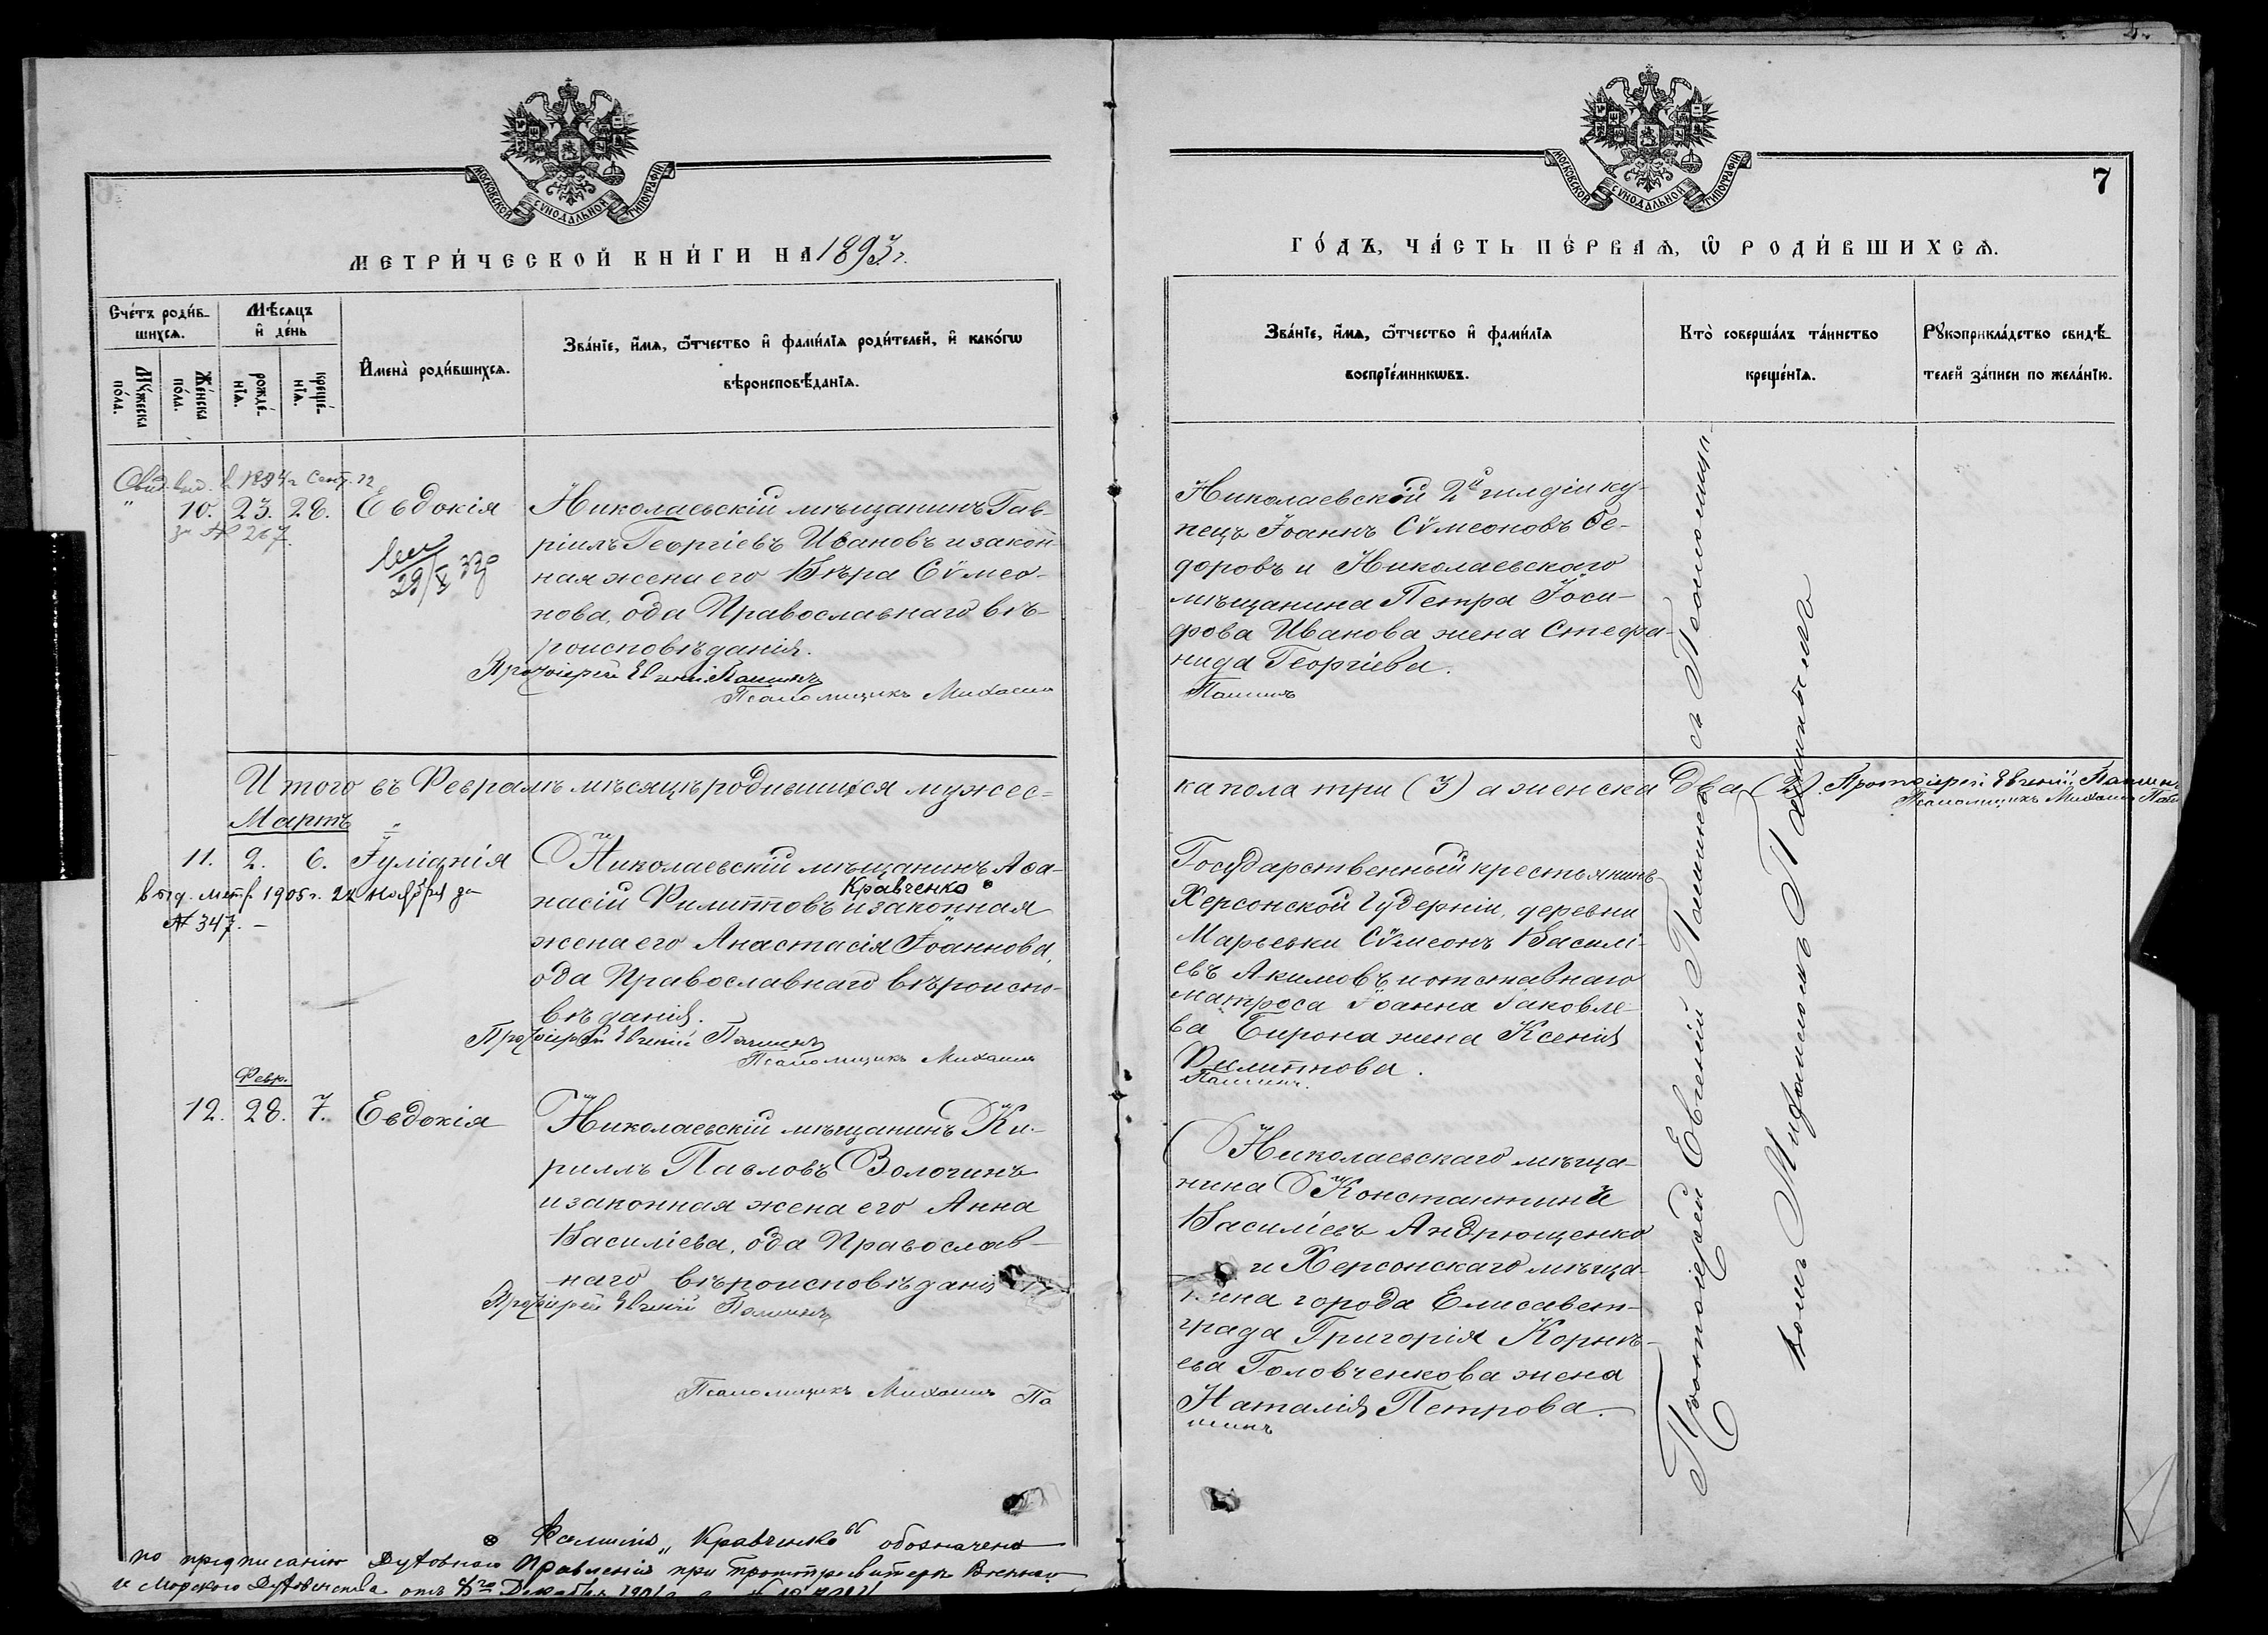 МОСКОВСКОЙ СѴНОДАЛЬНОЙ ТИПОГРАФІИ
МЕТРИ́ЧЕСКОЙ КНИ́ГИ НА 1893 г.
Сче́тъ роди́в-
шихсѧ.
Мѣ́сѧцъ
и҆ де́нь
Мꙋ́жеска
по́ла.
Же́нска
по́ла.
рожде́-
нїѧ.
креще́-
нїѧ.
И҆мена̀ роди́вшихсѧ.
Зва́нїе, и҆́мѧ, ѻ҆́тчество и҆ фами́лїѧ роди́телей, и҆ како́гѡ
вѣроисповѣ́данїѧ.
Свид. выд. в 1894 г. Сент. 22
" 10. 23. 28. Евдокія
за № 267.
29/X 32
Николаевскій мѣщанинъ Гав-
ріилъ Георгіевъ Ивановъ и закон-
ная жена его Вѣра Сѵмео-
нова, оба Православнаго вѣ-
роисповѣданія.
Протоіерей Евгеній Пашинъ
Псаломщикъ Михаилъ
Итого въ Февралѣ мѣсяцѣ родившихся мужес=
Мартъ
11. 2. 6. Іуліанія
выд. метр. 1905 г. 22 ноября за
№ 347. —
Николаевскій мѣщанинъ Аѳа-
Кравченко
насій Филипповъ и законная
жена его Анастасія Іоаннова,
оба Православнаго вѣроиспо-
вѣданія.
Протоіерей Евгеній Пашинъ
Псаломщикъ Михаилъ
Февр.
12. 28. 7. Евдокія
Николаевскій мѣщанинъ Ки-
риллъ Павловъ Волочинъ
и законная жена его Анна
Василіева, оба Православ-
наго вѣроисповѣданія
Протоіерей Евгеній Пашинъ
Псаломщикъ Михаилъ Па
Фамилія „Кравченко" обозначена
по предписанію Духовнаго Правленія при Протопресвитерѣ Военнаго
и Морского Духовенства отъ Декабря
МОСКОВСКОЙ СѴНОДАЛЬНОЙ ТИПОГРАФІИ
7
ГО́ДЪ, ЧА́СТЬ ПЕ́РВАѦ, Ѡ҆ РОДИ́ВШИХСѦ.
Зва́нїе, и҆́мѧ, ѻ҆́тчество и҆ фами́лїѧ
воспрїе́мникѡвъ.
Кто̀ соверша́лъ та́инство
креще́нїѧ.
Рꙋкоприкла́дство свидѣ́-
телей за́писи по жела́нїю.
Николаевской 2й гилдіи ку-
пецъ Іоаннъ Сѵмеоновъ Ѳе-
доровъ и Николаевскаго
мѣщанина Петра Іоси-
фова Иванова жена Стефа-
нида Георгіева.
Пашинъ
ка пола три (3) а женска два (2). Протоіерей Евгеній Пашинъ
Псаломщикъ Михаилъ Паш
Государственный крестьянинъ
Херсонской Губерніи, деревни
Марьевки Сѵмеонъ Василі-
евъ Акимовъ и отставнаго
матроса Іоанна Іаковле-
ва Бирона жена Ксенія
Филиппова.
Пашинъ.
Николаевскаго мѣща-
нина Константинъ
Василіевъ Андрющенко
и Херсонскаго мѣща-
нина города Елисавет-
града Григорія Корнѣ-
ева Головченкова жена
Наталія Петрова.
шинъ
Протоіерей Евгеній Пашинъ съ Псаломщи-
комъ Михаиломъ Пашинымъ